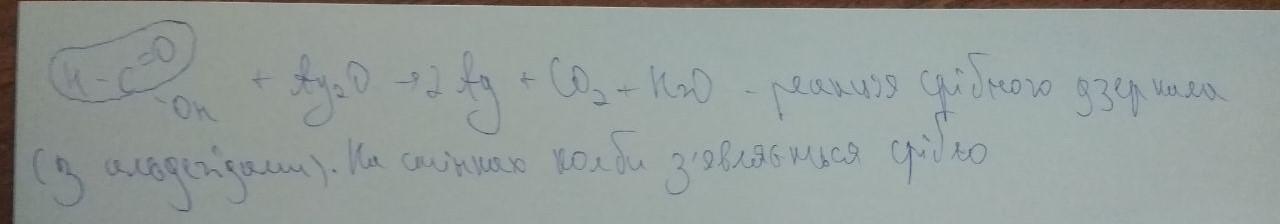 H-C=O OH + Ag2O → 2Ag + CO2 + H2O - реакція срібного дзеркала
(з альдегідами). На стінках колби з'являється срібло